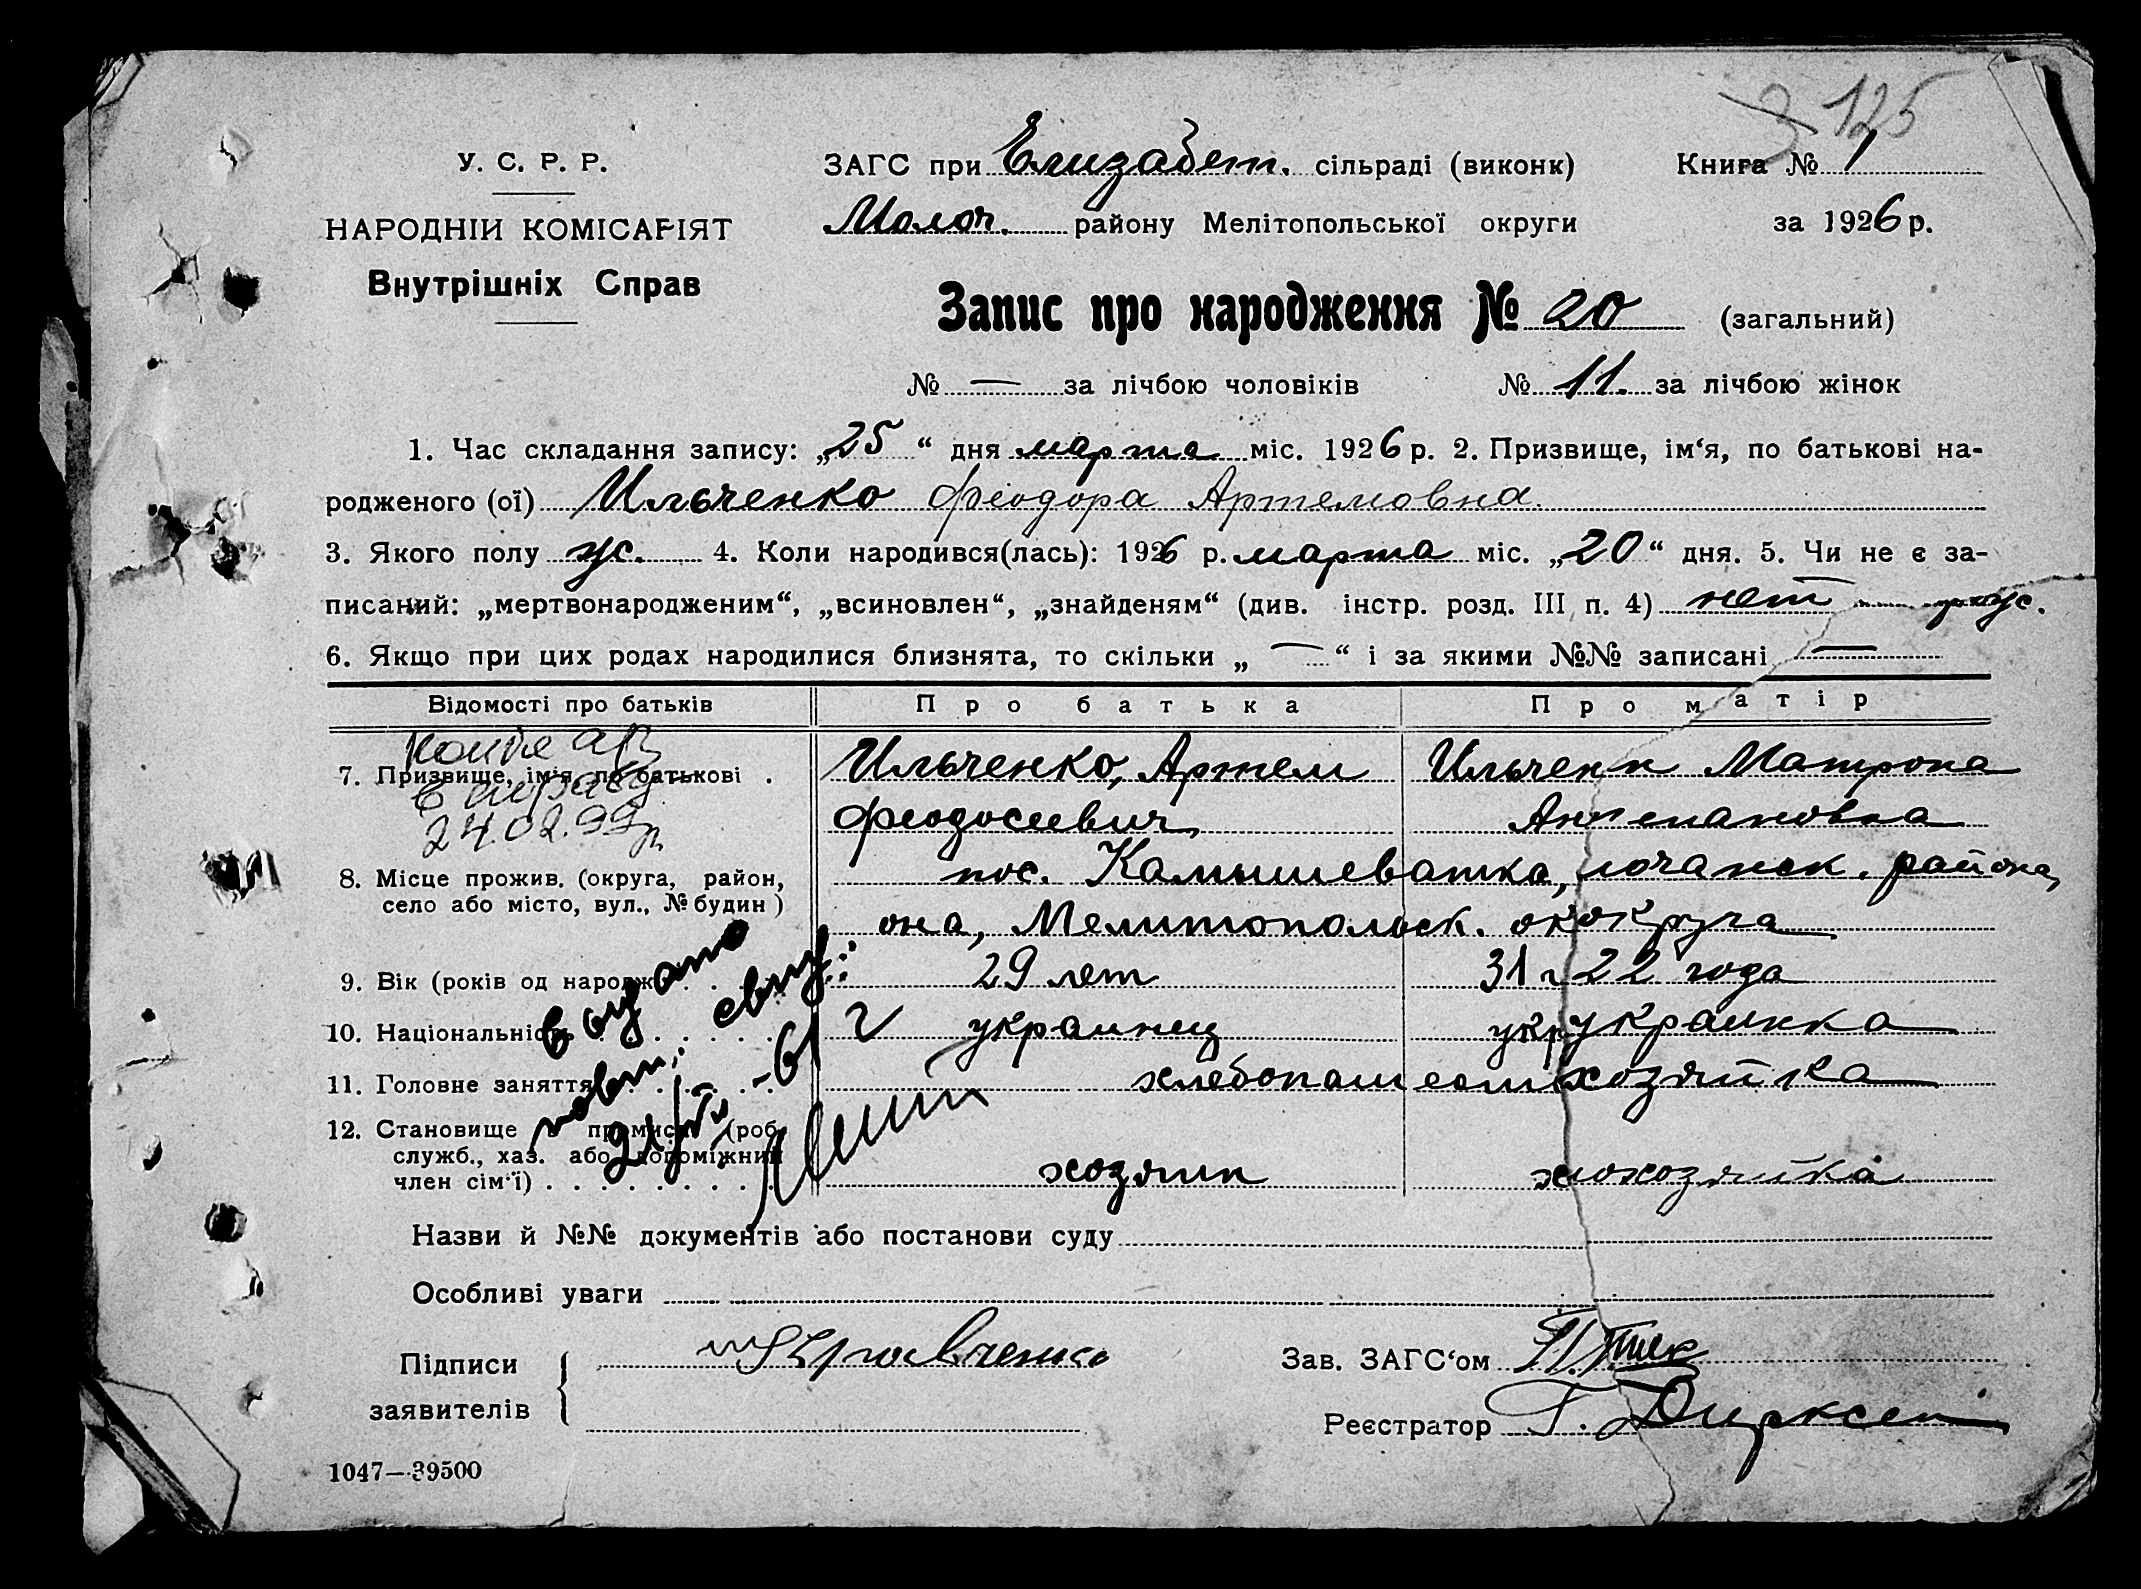 125
У. С. Р. Р.
НАРОДНІЙ КОМІСАРІЯТ
Внутрішніх Справ
ЗАГС при Елизабет. сільраді (виконк) Книга № 1
Молоч. району Мелітопольської округи за 1926 р.
Запис про народження № 20 (загальний)
№ — за лічбою чоловіків № 11. за лічбою жінок
1. Час складання запису: „25“ дня марта міс. 1926 р. 2. Призвище, ім‘я, по батькові на-
родженого (ої) Ильченко Феодора Артемовна.
3. Якого полу жс. 4. Коли народився(лась): 1926 р. марта міс. „20“ дня. 5. Чи не є за-
писаний: „мертвонародженим“, „всиновлен“, „знайденям“ (див. інстр. розд. III п. 4) нет
6. Якщо при цих родах народилися близнята, то скільки „—“ і за якими №№ записані —
Відомості про батьків Про батька Про матір
7. Призвище, ім‘я, по батькові . Ильченко, Артем Ильченк Матрона
Феодосиевич,
24.02.99р
8. Місце прожив. (округа, район, пос. Камышеватка, лочанск. района,
село або місто, вул., № будин) она, Мелитопольск. округа
9. Вік (років од нарож 29 лет 31 г 22 года
10. Національність украинец укр украинка
11. Головне заняття хлебопаш хозяйка
12. Становище в промислі (роб.
служб., хаз. або допоміжний
член сім‘ї) хозяин хозяйка
Назви й №№ документів або постанови суду
Особливі уваги
Підписи Кравченко Зав. ЗАГС‘ом
заявителів Реєстратор Г. Дирксен
1047—39500